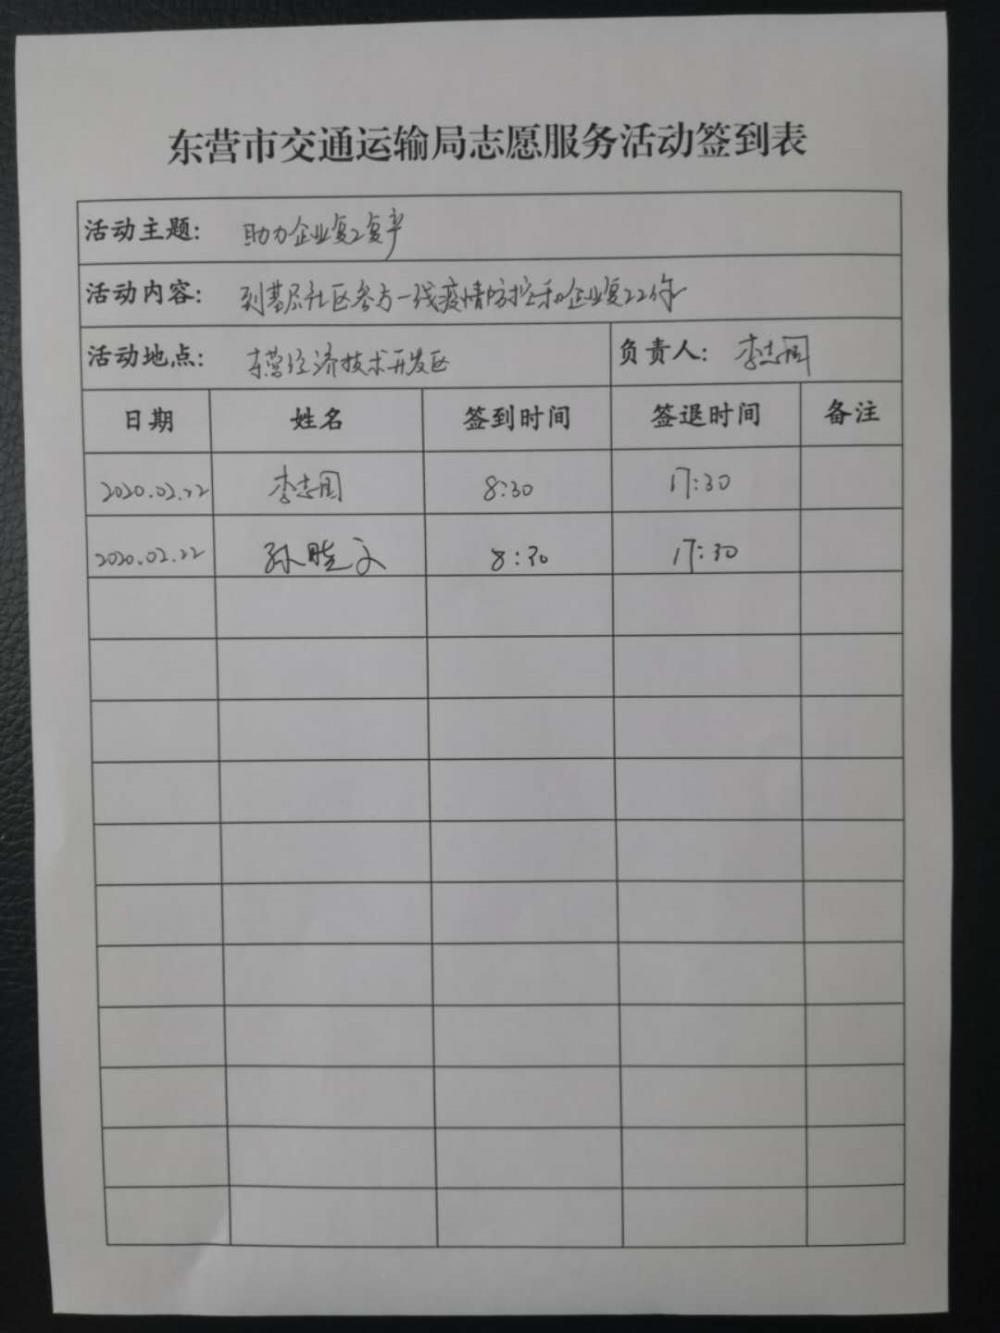 东营市交通运输局志愿服务活动签到表
活动主题: 助力企业复工复产
活动内容: 到基层社区参与一线疫情防控和企业复工工作
活动地点: 东营经济技术开发区 负责人: 李志国
日期 姓名 签到时间 签退时间 备注
2020.02.22 李志国 8:30 17:30
2020.02.22 孙晓文 8:30 17:30